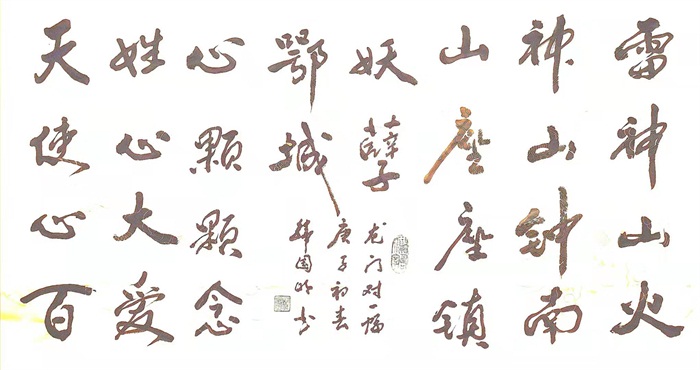 雷神山火
神山钟南
山座座镇
妖孽
天使心百
姓心大爱
心颗颗念
鄂城
龙门对一幅
庚子初春
韩国书